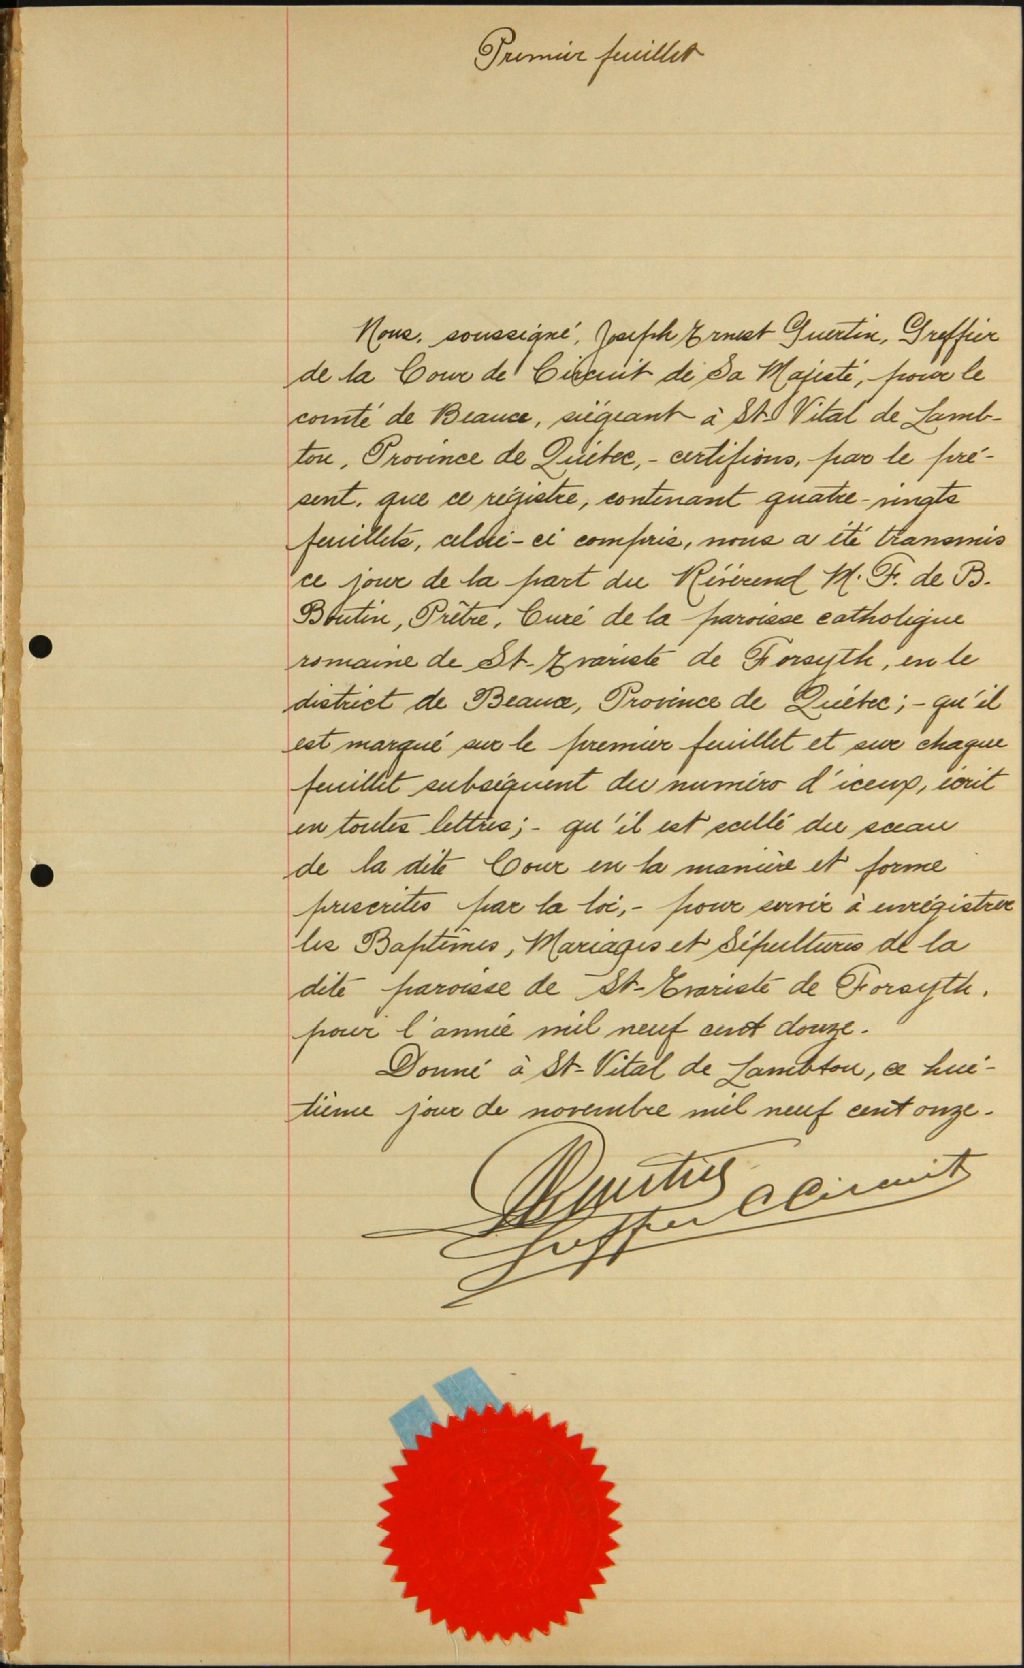 Premier feuillet
Nous, soussigné, Joseph Ernest Guertin, Greffier
de la Cour de Circuit de Sa Majesté, pour le
comté de Beauce, siégeant à St-Vital de Lamb-
ton, Province de Québec, - certifions, par le pré-
sent, que ce régistre, contenant quatre-vingts
feuillets, celui-ci compris, nous a été transmis
ce jour de la part du Révérend M. F. de B.
Boutin, Prêtre, Curé de la paroisse catholique
romaine de St-Evariste de Forsyth, en le
district de Beauce, Province de Québec; - qu'il
est marqué sur le premier feuillet et sur chaque
feuillet subséquent du numéro d'iceux, écrit
en toutes lettres; - qu'il est scellé du sceau
de la dite Cour en la manière et forme
prescrites par la loi, - pour servir à enrégistrer
les Baptêmes, Mariages et Sépultures de la
dite paroisse de St-Evariste de Forsyth,
pour l'année mil neuf cent douze.
Donné à St-Vital de Lambton, ce hui-
tième jour de novembre mil neuf cent onze.
Guertin
Greffier C Circuit